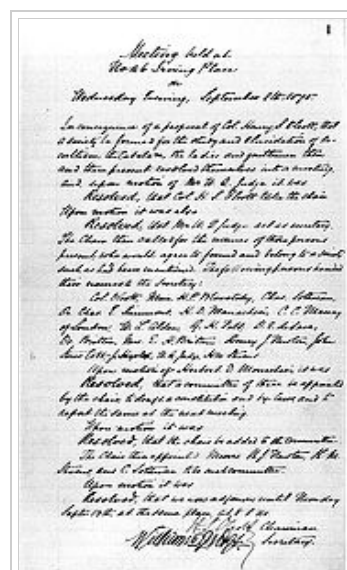 1
Meeting held at
No 46 Irving Place
on
Wednesday Evening, September 8th 1875.
In consequence of a proposal of Col. Henry S. Olcott, that
a society be formed for the study and elucidation of Oc-
cultism, the Cabala, the ladies and gentlemen then
and there present resolved themselves into a meeting,
and, upon motion of Mr W. Q. Judge it was
Resolved, that Col H. S. Olcott take the chair
Upon motion it was also
Resolved, that Mr W. Q. Judge act as secretary.
The Chair then called for the names of those persons
present, who would agree to found and belong to a society
such as had been mentioned. The following persons handed
their names to the Secretary:
Col. Olcott, Mme. H. P. Blavatsky, Chas. Sotheran,
Dr. Chas. E. Simmons, H. D. Monachesi, C. C. Massey
of London, W. L. Alden, G. H. Felt, D. E. de Lara,
Dr. Britten, Mrs. E. H. Britten, Henry J. Newton, John
Storer Cobb, J. Hyslop, W. Q. Judge, H. M. Stevens
Upon motion of Herbert D. Monachesi it was
Resolved, that a committee of three be appointed
by the chair, to draft a constitution and by laws and to
report the same at the next meeting.
Upon motion it was
Resolved, that the chair be added to the committee.
The Chair then appointed Messrs H. J. Newton, H. M.
Stevens, and C. Sotheran to be such committee.
Upon motion it was
Resolved, that we now adjourn until Monday
Septr. 13th, at the same place, at 8 P. M.
H. S. Olcott Chairman
William Q Judge Secretary.